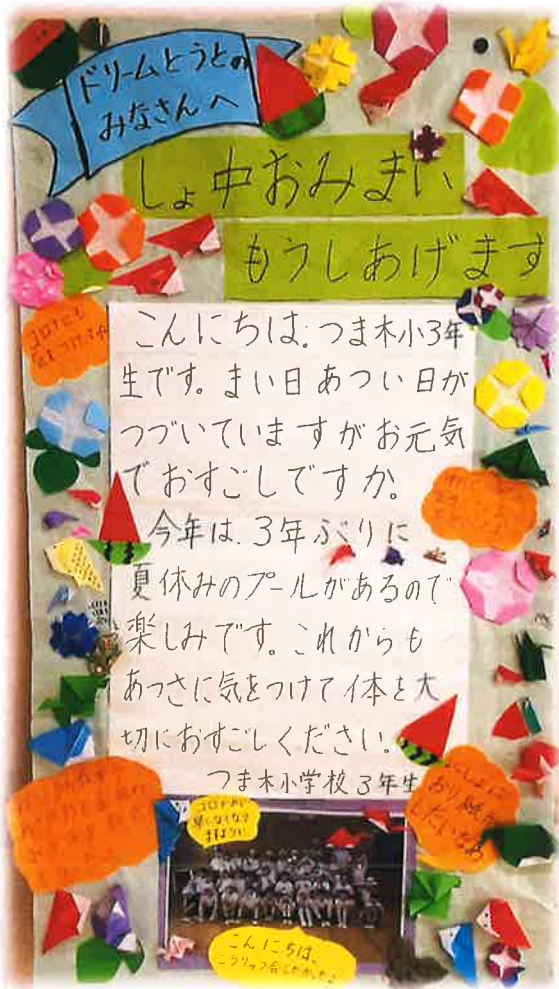 ドリームとうとの
みなさんへ
しょ中おみまい
もうしあげます
コロナにも
気をつけてね
こんにちは。つま木小3年
生です。まい日あつい日が
つづいていますがお元気
でおすごしですか。
今年は、3年ぶりに
夏休みのプールがあるので
楽しみです。これからも
あつさに気をつけて体を大
切におすごしください。
つま木小学校3年生
いっしょに
おり紙が
したいなあ
コロナが
早くなくなり
ますように
こんにちは、